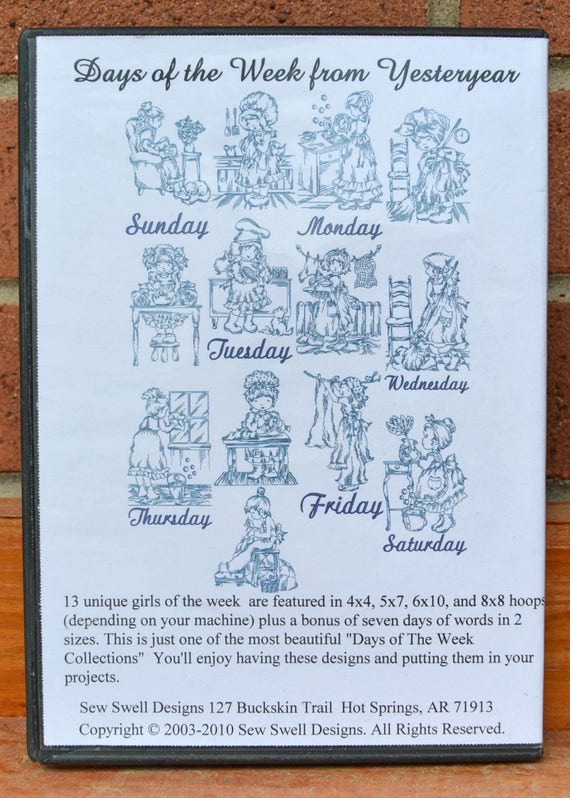 Days of the Week from Yesteryear
Sunday
Monday
Tuesday
Wednesday
Thursday
Friday
Saturday
13 unique girls of the week are featured in 4x4, 5x7, 6x10, and 8x8 hoops
(depending on your machine) plus a bonus of seven days of words in 2
sizes. This is just one of the most beautiful "Days of The Week
Collections" You'll enjoy having these designs and putting them in your
projects.
Sew Swell Designs 127 Buckskin Trail Hot Springs, AR 71913
Copyright © 2003-2010 Sew Swell Designs. All Rights Reserved.